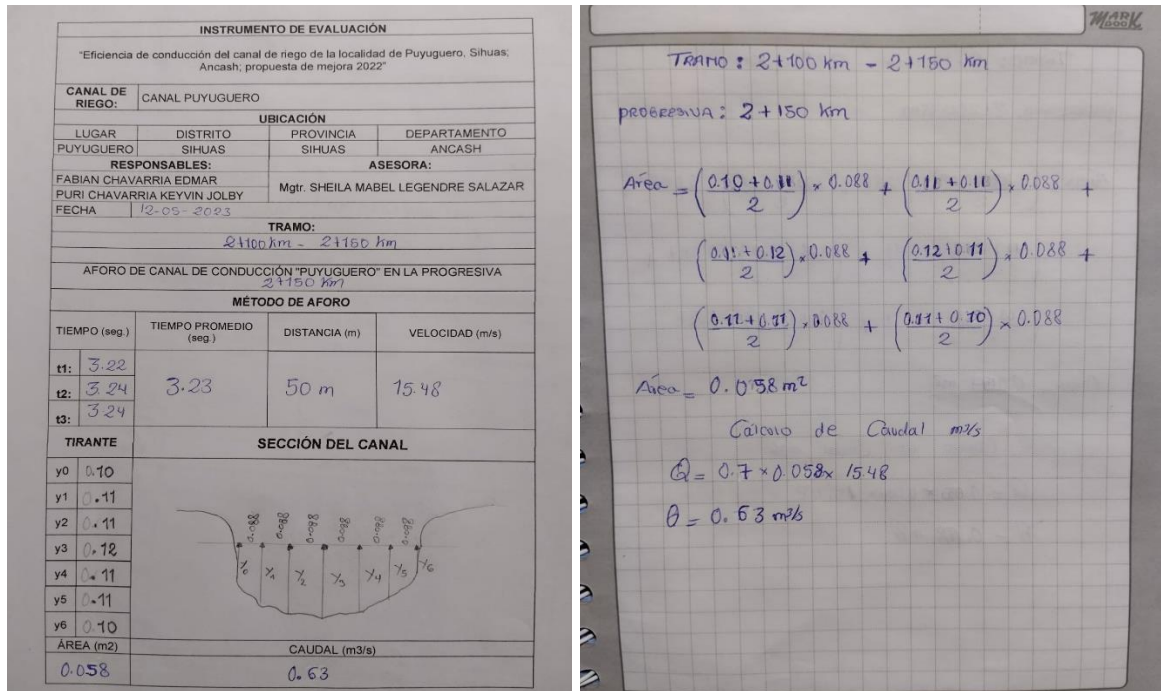 INSTRUMENTO DE EVALUACIÓN
"Eficiencia de conducción del canal de riego de la localidad de Puyuguero, Sihuas;
Ancash; propuesta de mejora 2022"
CANAL DE RIEGO: CANAL PUYUGUERO
UBICACIÓN
LUGAR DISTRITO PROVINCIA DEPARTAMENTO
PUYUGUERO SIHUAS SIHUAS ANCASH
RESPONSABLES: ASESORA:
FABIAN CHAVARRIA EDMAR
PURI CHAVARRIA KEYVIN JOLBY
Mgtr. SHEILA MABEL LEGENDRE SALAZAR
FECHA 12-05-2023
TRAMO:
2+100 km - 2+150 km
AFORO DE CANAL DE CONDUCCIÓN "PUYUGUERO" EN LA PROGRESIVA
2+150 km
MÉTODO DE AFORO
TIEMPO (seg.) TIEMPO PROMEDIO (seg.) DISTANCIA (m) VELOCIDAD (m/s)
t1: 3.22
t2: 3.24 3.23 50 m 15.48
t3: 3.24
TIRANTE SECCIÓN DEL CANAL
y0 0.10
y1 0.11
y2 0.11
y3 0.12
y4 0.11
y5 0.11
y6 0.10
0.088 0.088 0.088 0.088 0.088 0.088
Y0 Y1 Y2 Y3 Y4 Y5 Y6
ÁREA (m2) CAUDAL (m3/s)
0.058 0.63
MARK BOOK
TRAMO: 2+100 km - 2+150 km
PROGRESIVA: 2+150 km
Área = ((0.10 + 0.11)/2) × 0.088 + ((0.11 + 0.11)/2) × 0.088 +
((0.11 + 0.12)/2) × 0.088 + ((0.12 + 0.11)/2) × 0.088 +
((0.11 + 0.11)/2) × 0.088 + ((0.11 + 0.10)/2) × 0.088
Área = 0.058 m²
Cálculo de Caudal m³/s
Q = 0.7 × 0.058 × 15.48
Q = 0.63 m³/s